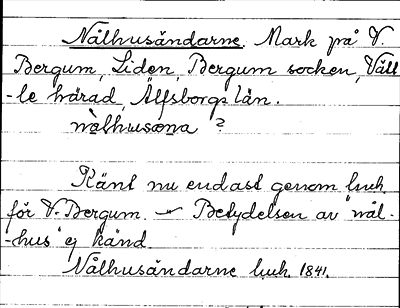 Nålhusändarne. Mark på V.
Bergum, Liden, Bergum socken, Vätt
-le härad, Älfsborgs län.
nålhusæna ?
Känt nu endast genom huk
för V. Bergum. — Betydelsen av "nål-
-hus" ej känd.
Nålhusändarne huk. 1841.